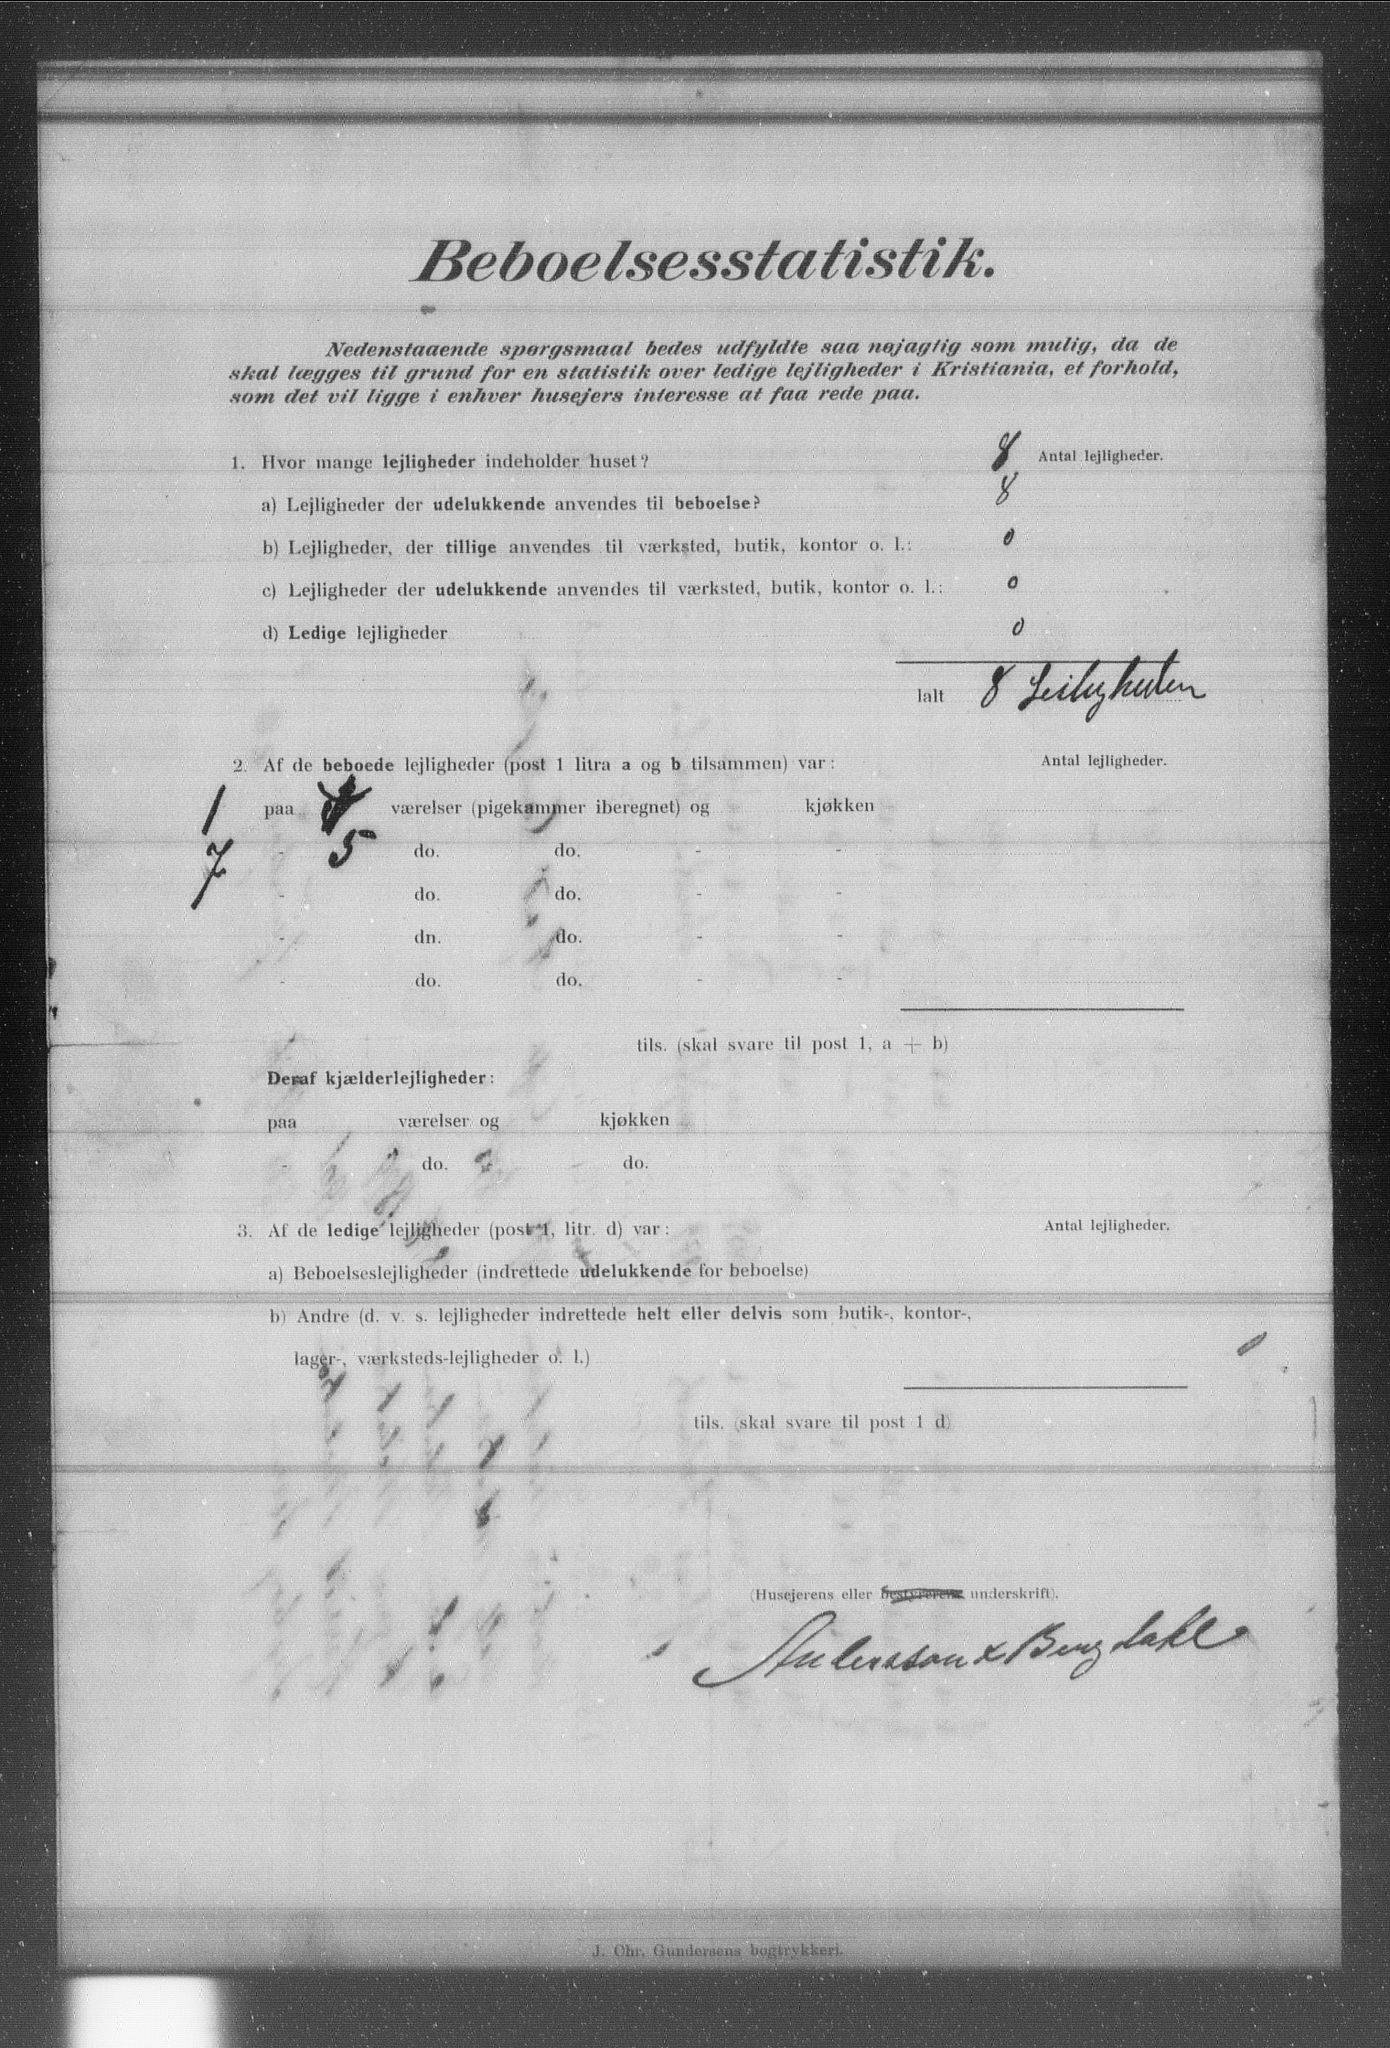 Beboelsesstatistik.
Nedenstaaende spørgsmaal bedes udfyldte saa nøjagtig som mulig, da de
skal lægges til grund for en statistik over ledige lejligheder i Kristiania, et forhold,
som det vil ligge i enhver husejers interesse at faa rede paa.
1. Hvor mange lejligheder indeholder huset? 8 Antal lejligheder.
a) Lejligheder der udelukkende anvendes til beboelse? 8
b) Lejligheder, der tillige anvendes til værksted, butik, kontor o. l.: 0
c) Lejligheder der udelukkende anvendes til værksted, butik, kontor o. l.: 0
d) Ledige lejligheder 0
Ialt 8 Leiligheden
2. Af de beboede lejligheder (post 1 litra a og b tilsammen) var: Antal lejligheder.
1 paa værelser (pigekammer iberegnet) og kjøkken
7 - 5 do. do. - -
- do. do. - -
- dn. do. - -
- do. do. - -
tils. (skal svare til post 1, a + b)
Deraf kjælderlejligheder:
paa værelser og kjøkken
- do. - do.
3. Af de ledige lejligheder (post 1, litr. d) var: Antal lejligheder.
a) Beboelseslejligheder (indrettede udelukkende for beboelse)
b) Andre (d. v. s. lejligheder indrettede helt eller delvis som butik-, kontor-,
lager-, værksteds-lejligheder o. l.) 0
tils. (skal svare til post 1 d)
(Husejerens eller bestyrerens underskrift).
Andersson & Bengdahl
J. Chr. Gundersens bogtrykkeri.